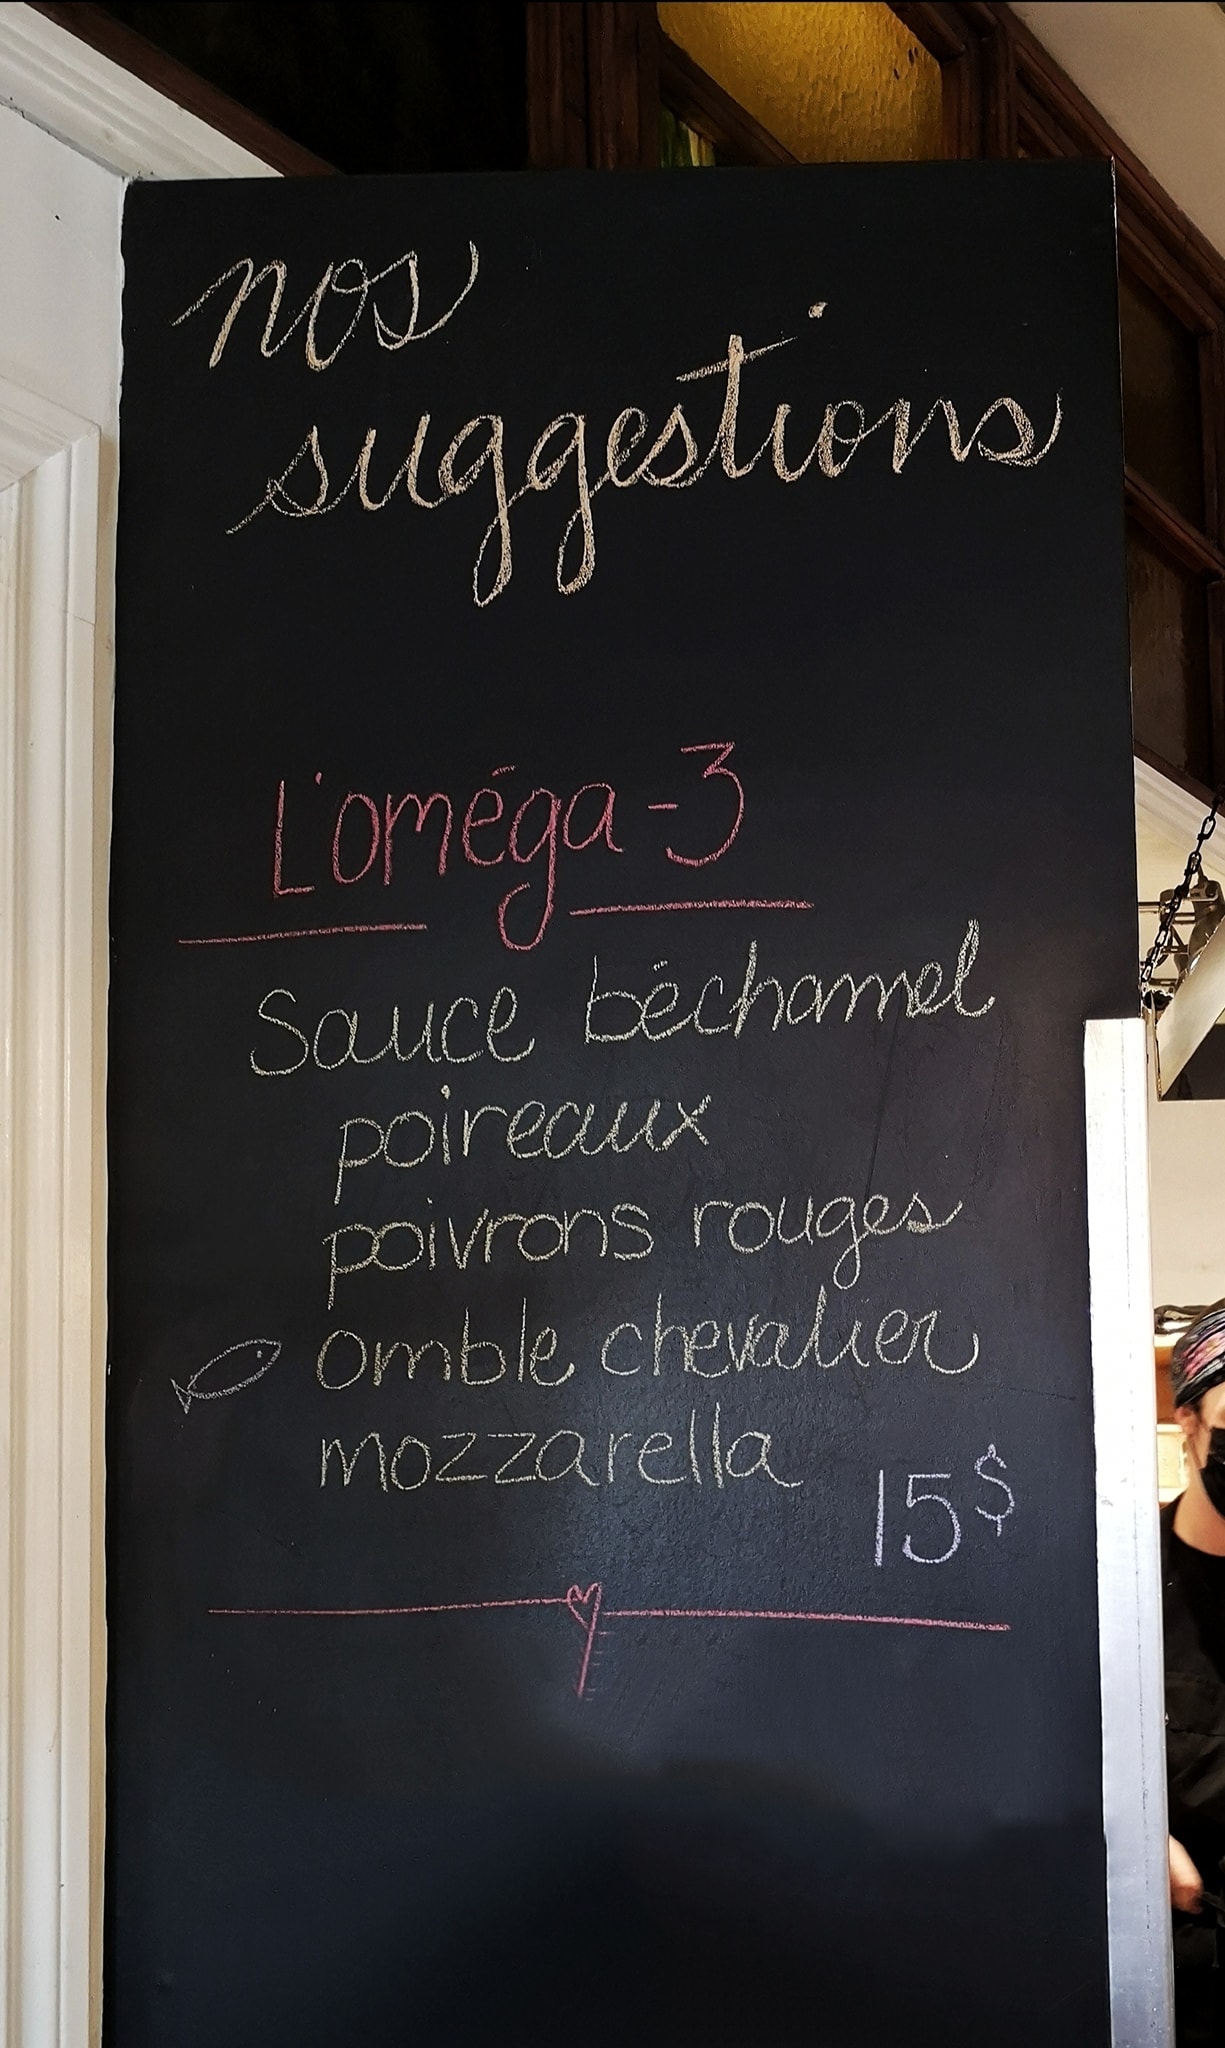 nos
suggestions
L'oméga-3
Sauce béchamel
poireaux
poivrons rouges
omble chevalier
mozzarella
15$